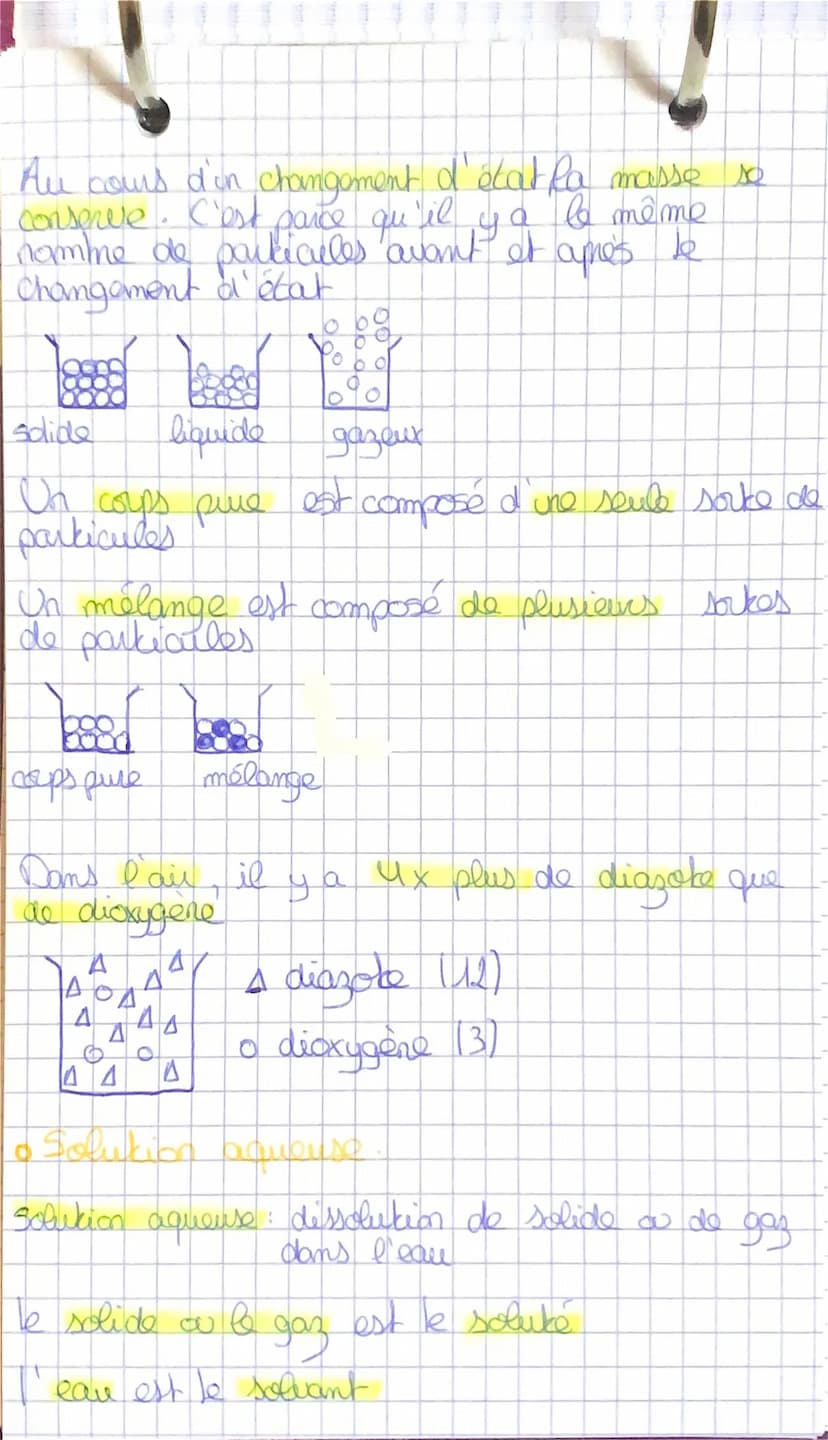 Au cours d'un changement d'état la masse se
conserve. C'est parce qu'il y a le même
nombre de particules avant et après le
changement d'état
solide liquide gazeux
Un corps pure est composé d'une seule sorte de
particules
Un mélange est composé de plusieurs sortes
de particules
corps pure mélange
Dans l'air, il y a 4x plus de diazote que
de dioxygène
∆ diazote (12)
o dioxygène (3)
o Solution aqueuse.
Solution aqueuse : dissolution de solide ou de gaz
dans l'eau
le solide ou le gaz est le soluté
l'eau est le solvant